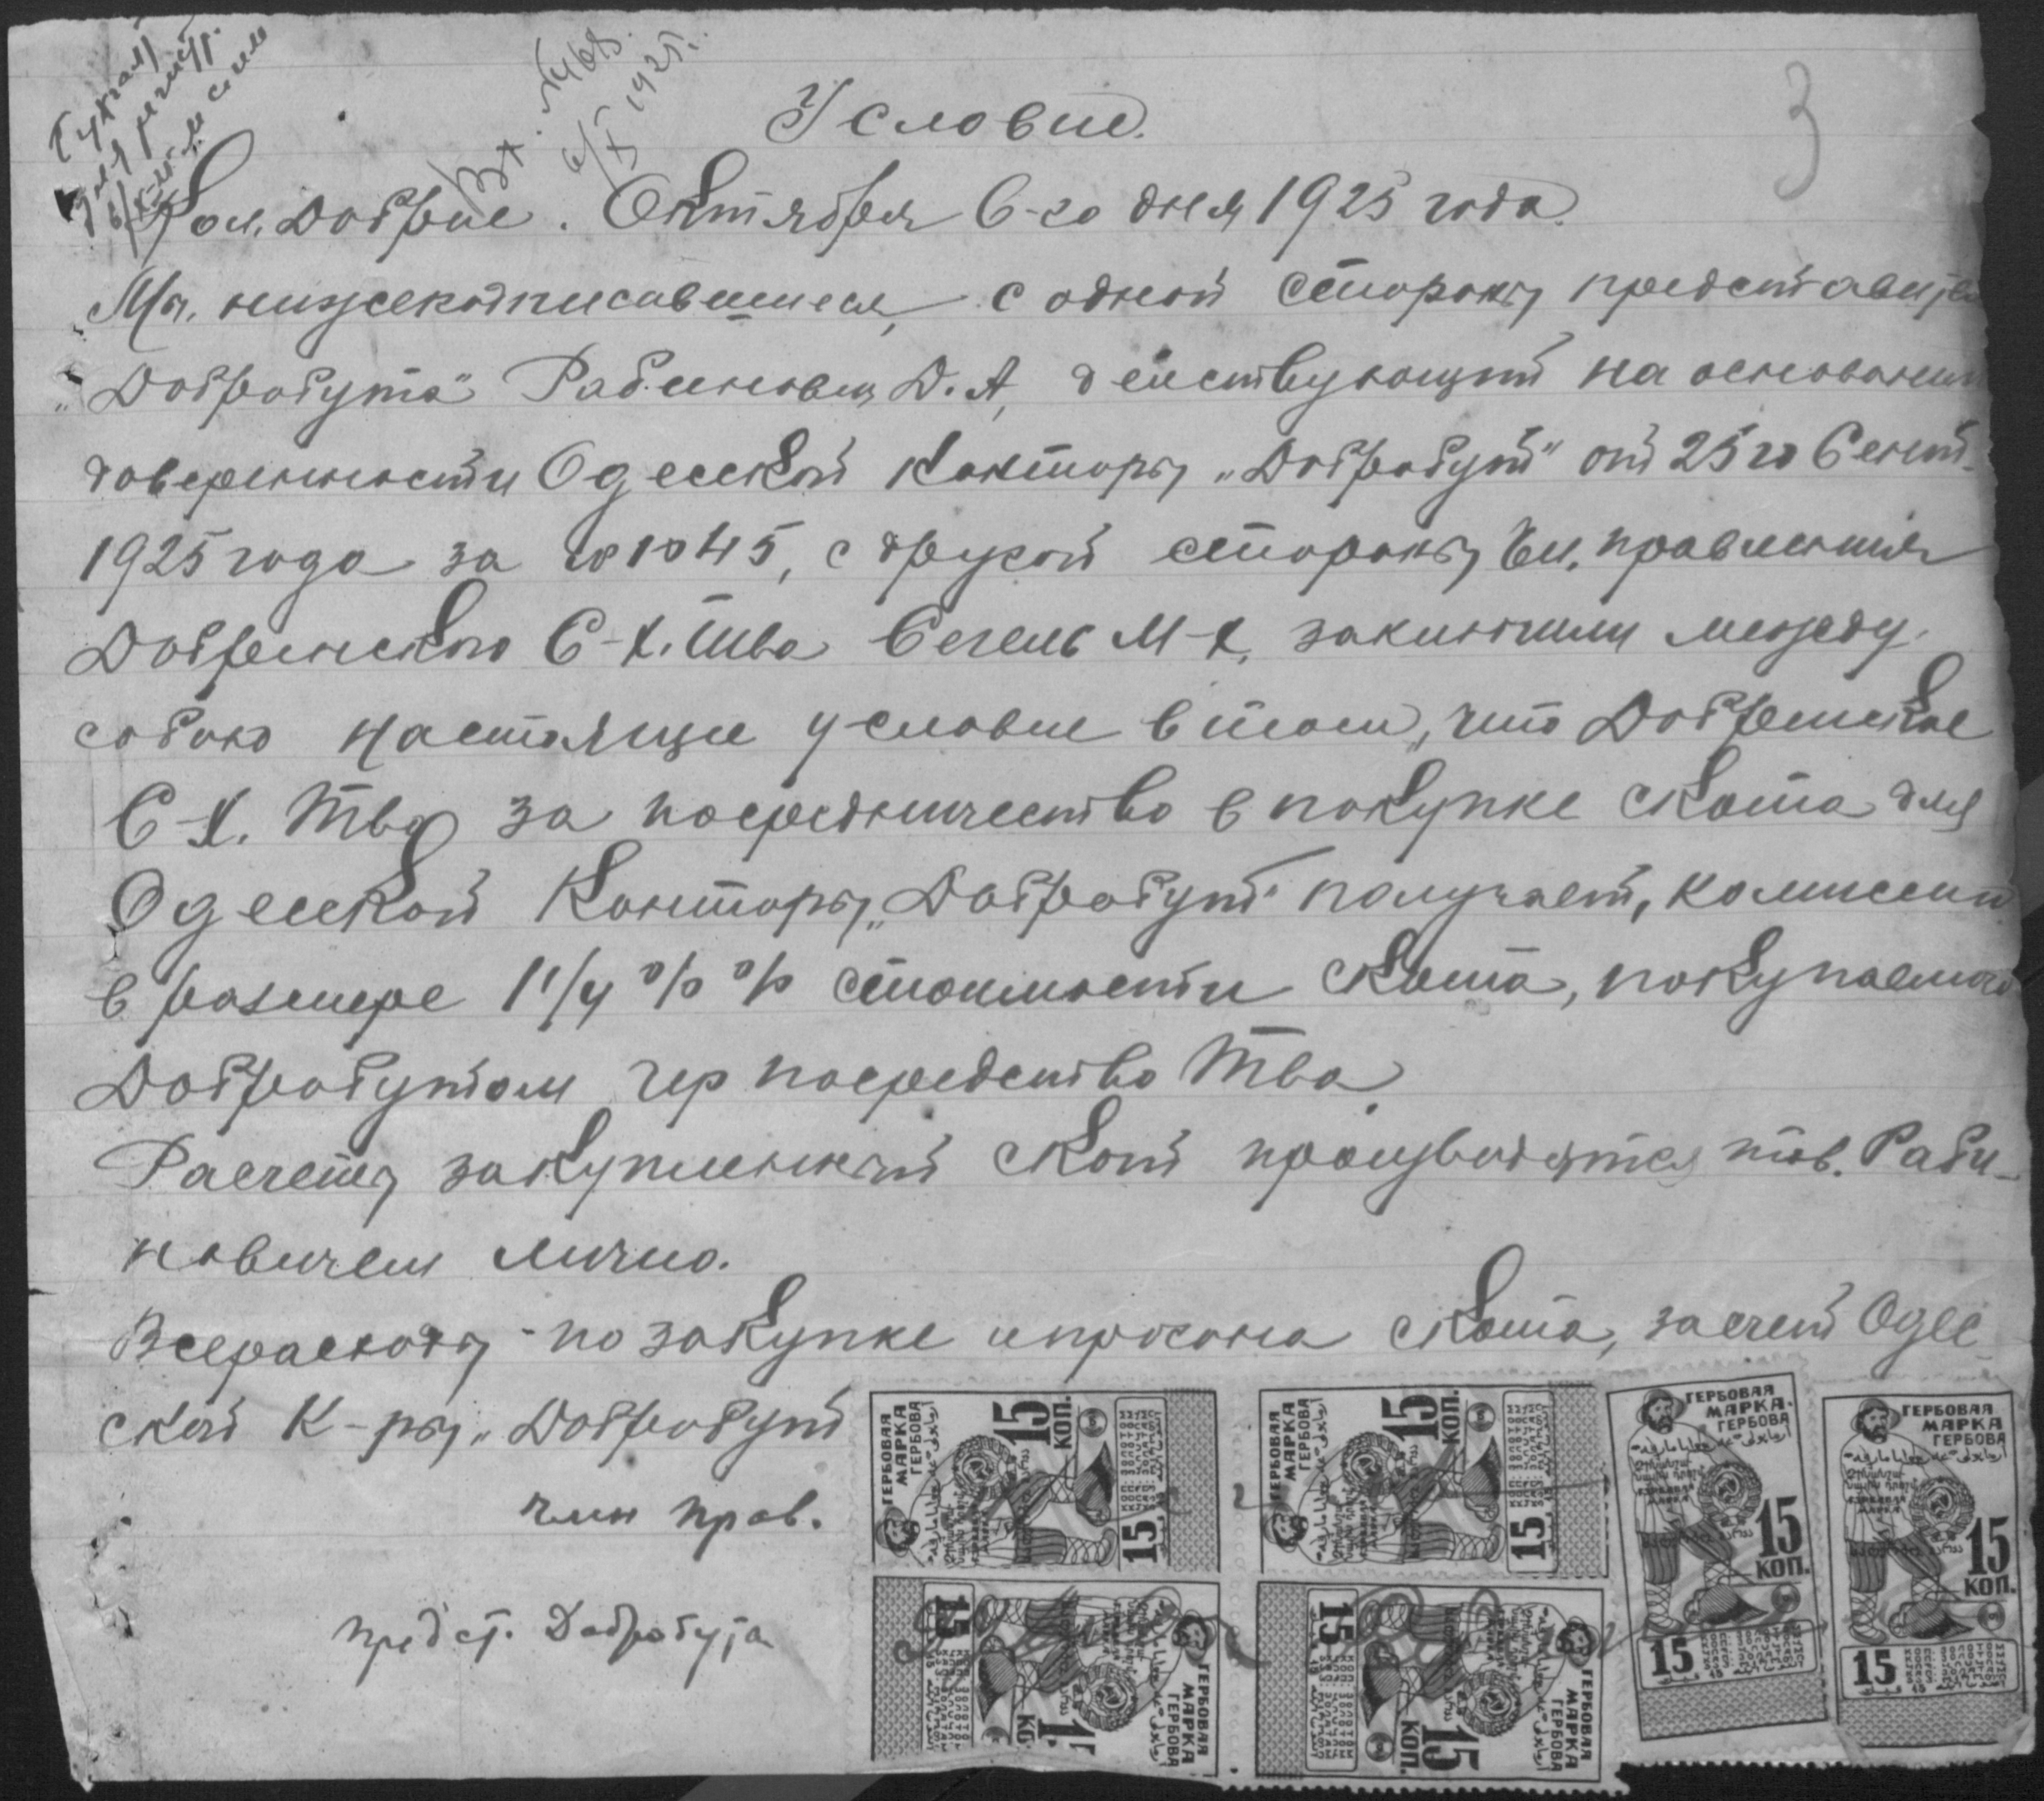 3
Вх. №468.
6/X 1925 г.
Условие.
Кол. Добрые. Октября 6-го дня 1925 года.
Мы, нижеподписавшиеся, с одной стороны представит
"Добробута" Рабинович Д. А, действующий на основании
доверенности Одесской Конторы "Добробут" от 25го Сент-
1925 года за № 1045, с другой стороны Чл. правления
Добренского С-Х. Тва Сегель М-Х, заключили между
собою настоящие условие в том, что Добренское
С-Х. Тво за посредничество в покупке скота для
Одесской Конторы "Добробут" получает, комиссии
в размере 1 1/4 % % стоимости скота, покупаемого
Добробутом чер посредство Тва.
Расчеты закупленный скот производятся тов. Раби-
новичем лично.
Все расходы по закупке и прогона скота, за счет Одес-
ской К-ры "Добробут
член прав.
предст. Добробута
ГЕРБОВАЯ МАРКА ГЕРБОВА 15 КОП. 15
ГЕРБОВАЯ МАРКА ГЕРБОВА 15 КОП. 15
ГЕРБОВАЯ МАРКА. ГЕРБОВА 15 КОП. 15
ГЕРБОВАЯ МАРКА ГЕРБОВА 15 КОП. 15
ГЕРБОВАЯ МАРКА ГЕРБОВА 15
ГЕРБОВАЯ МАРКА ГЕРБОВА 15 КОП. 15